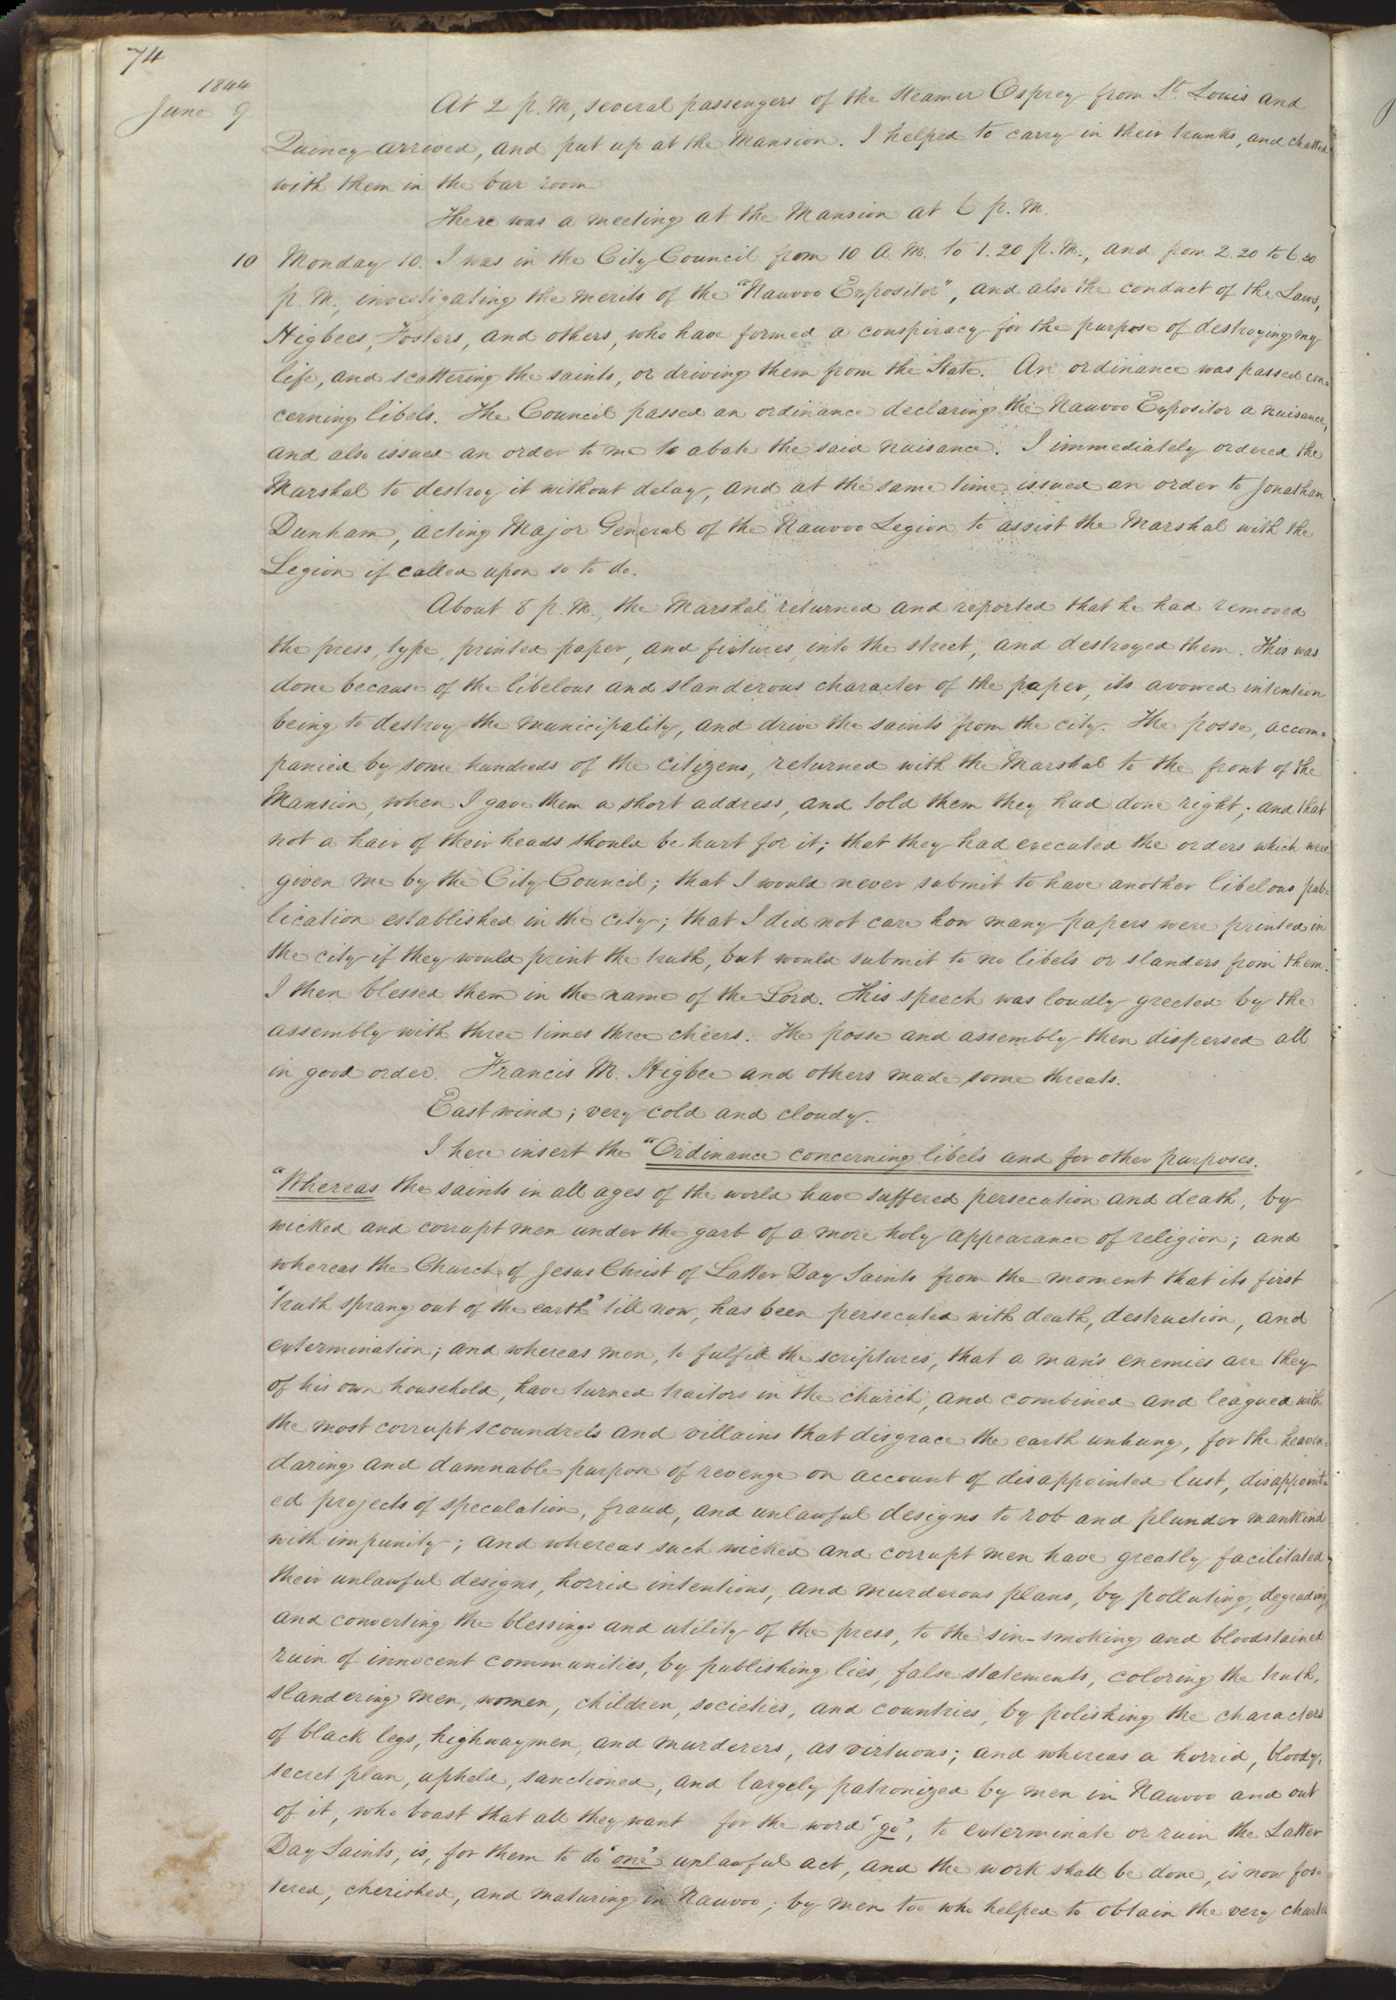 74
1844
June 9
At 2 p. M, several passengers of the steamer Osprey from St. Louis and
Quincy arrived, and put up at the Mansion. I helped to carry in their trunks, and chatted
with them in the bar room
There was a meeting at the Mansion at 6 p. M.
10 Monday 10. I was in the City Council from 10 A. M. to 1.20 p. M., and from 2.20 to 6.30
p. M., investigating the merits of the "Nauvoo Expositor", and also the conduct of the Laws,
Higbees, Fosters, and others, who have formed a conspiracy for the purpose of destroying my
life, and scattering the saints, or driving them from the State. An ordinance was passed con=
cerning libels. The Council passed an ordinance declaring the Nauvoo Expositor a nuisance,
and also issued an order to me to abate the said nuisance. I immediately ordered the
Marshal to destroy it without delay, and at the same time issued an order to Jonathan
Dunham, acting Major General of the Nauvoo Legion to assist the Marshal with the
Legion if called upon so to do.
About 8 p. M., the Marshal returned and reported that he had removed
the press, type, printed paper, and fixtures, into the street, and destroyed them. This was
done because of the libelous and slanderous character of the paper, its avowed intention
being to destroy the municipality, and drive the saints from the city. The posse, accom=
panied by some hundreds of the citizens, returned with the Marshal to the front of the
Mansion, when I gave them a short address, and told them they had done right; and that
not a hair of their heads should be hurt for it; that they had executed the orders which were
given me by the City Council; that I would never submit to have another libelous pub=
lication established in the city; that I did not care how many papers were printed in
the city if they would print the truth, but would submit to no libels or slanders from them.
I then blessed them in the name of the Lord. This speech was loudly greeted by the
assembly with three times three cheers. The posse and assembly then dispersed all
in good order. Francis M. Higbee and others made some threats.
East wind; very cold and cloudy.
I here insert the "Ordinance concerning libels and for other purposes.
"Whereas the saints in all ages of the world have suffered persecution and death, by
wicked and corrupt men under the garb of a more holy appearance of religion; and
whereas the Church of Jesus Christ of Latter Day Saints from the moment that its first
"truth sprang out of the earth" till now, has been persecuted with death, destruction, and
extermination; and whereas men, to fulfil the scriptures, that a man's enemies are they
of his own household, have turned traitors in the church, and combined and leagued with
the most corrupt scoundrels and villains that disgrace the earth unhung, for the heaven=
daring and damnable purpose of revenge on account of disappointed lust, disappoint=
ed projects of speculation, fraud, and unlawful designs to rob and plunder mankind
with impunity; and whereas such wicked and corrupt men have greatly facilitated
their unlawful designs, horrid intentions, and murderous plans, by polluting, degrading
and converting the blessings and utility of the press, to the sin-smoking and bloodstained
ruin of innocent communities, by publishing lies, false statements, coloring the truth,
slandering men, women, children, societies, and countries, by polishing the characters
of black legs, highwaymen, and murderers, as virtuous; and whereas a horrid, bloody,
secret plan, upheld, sanctioned, and largely patronized by men in Nauvoo and out
of it, who boast that all they want for the word "go", to exterminate or ruin the Latter
Day Saints, is, for them to do "one" unlawful act, and the work shall be done, is now fos=
tered, cherished, and maturing in Nauvoo; by men too who helped to obtain the very